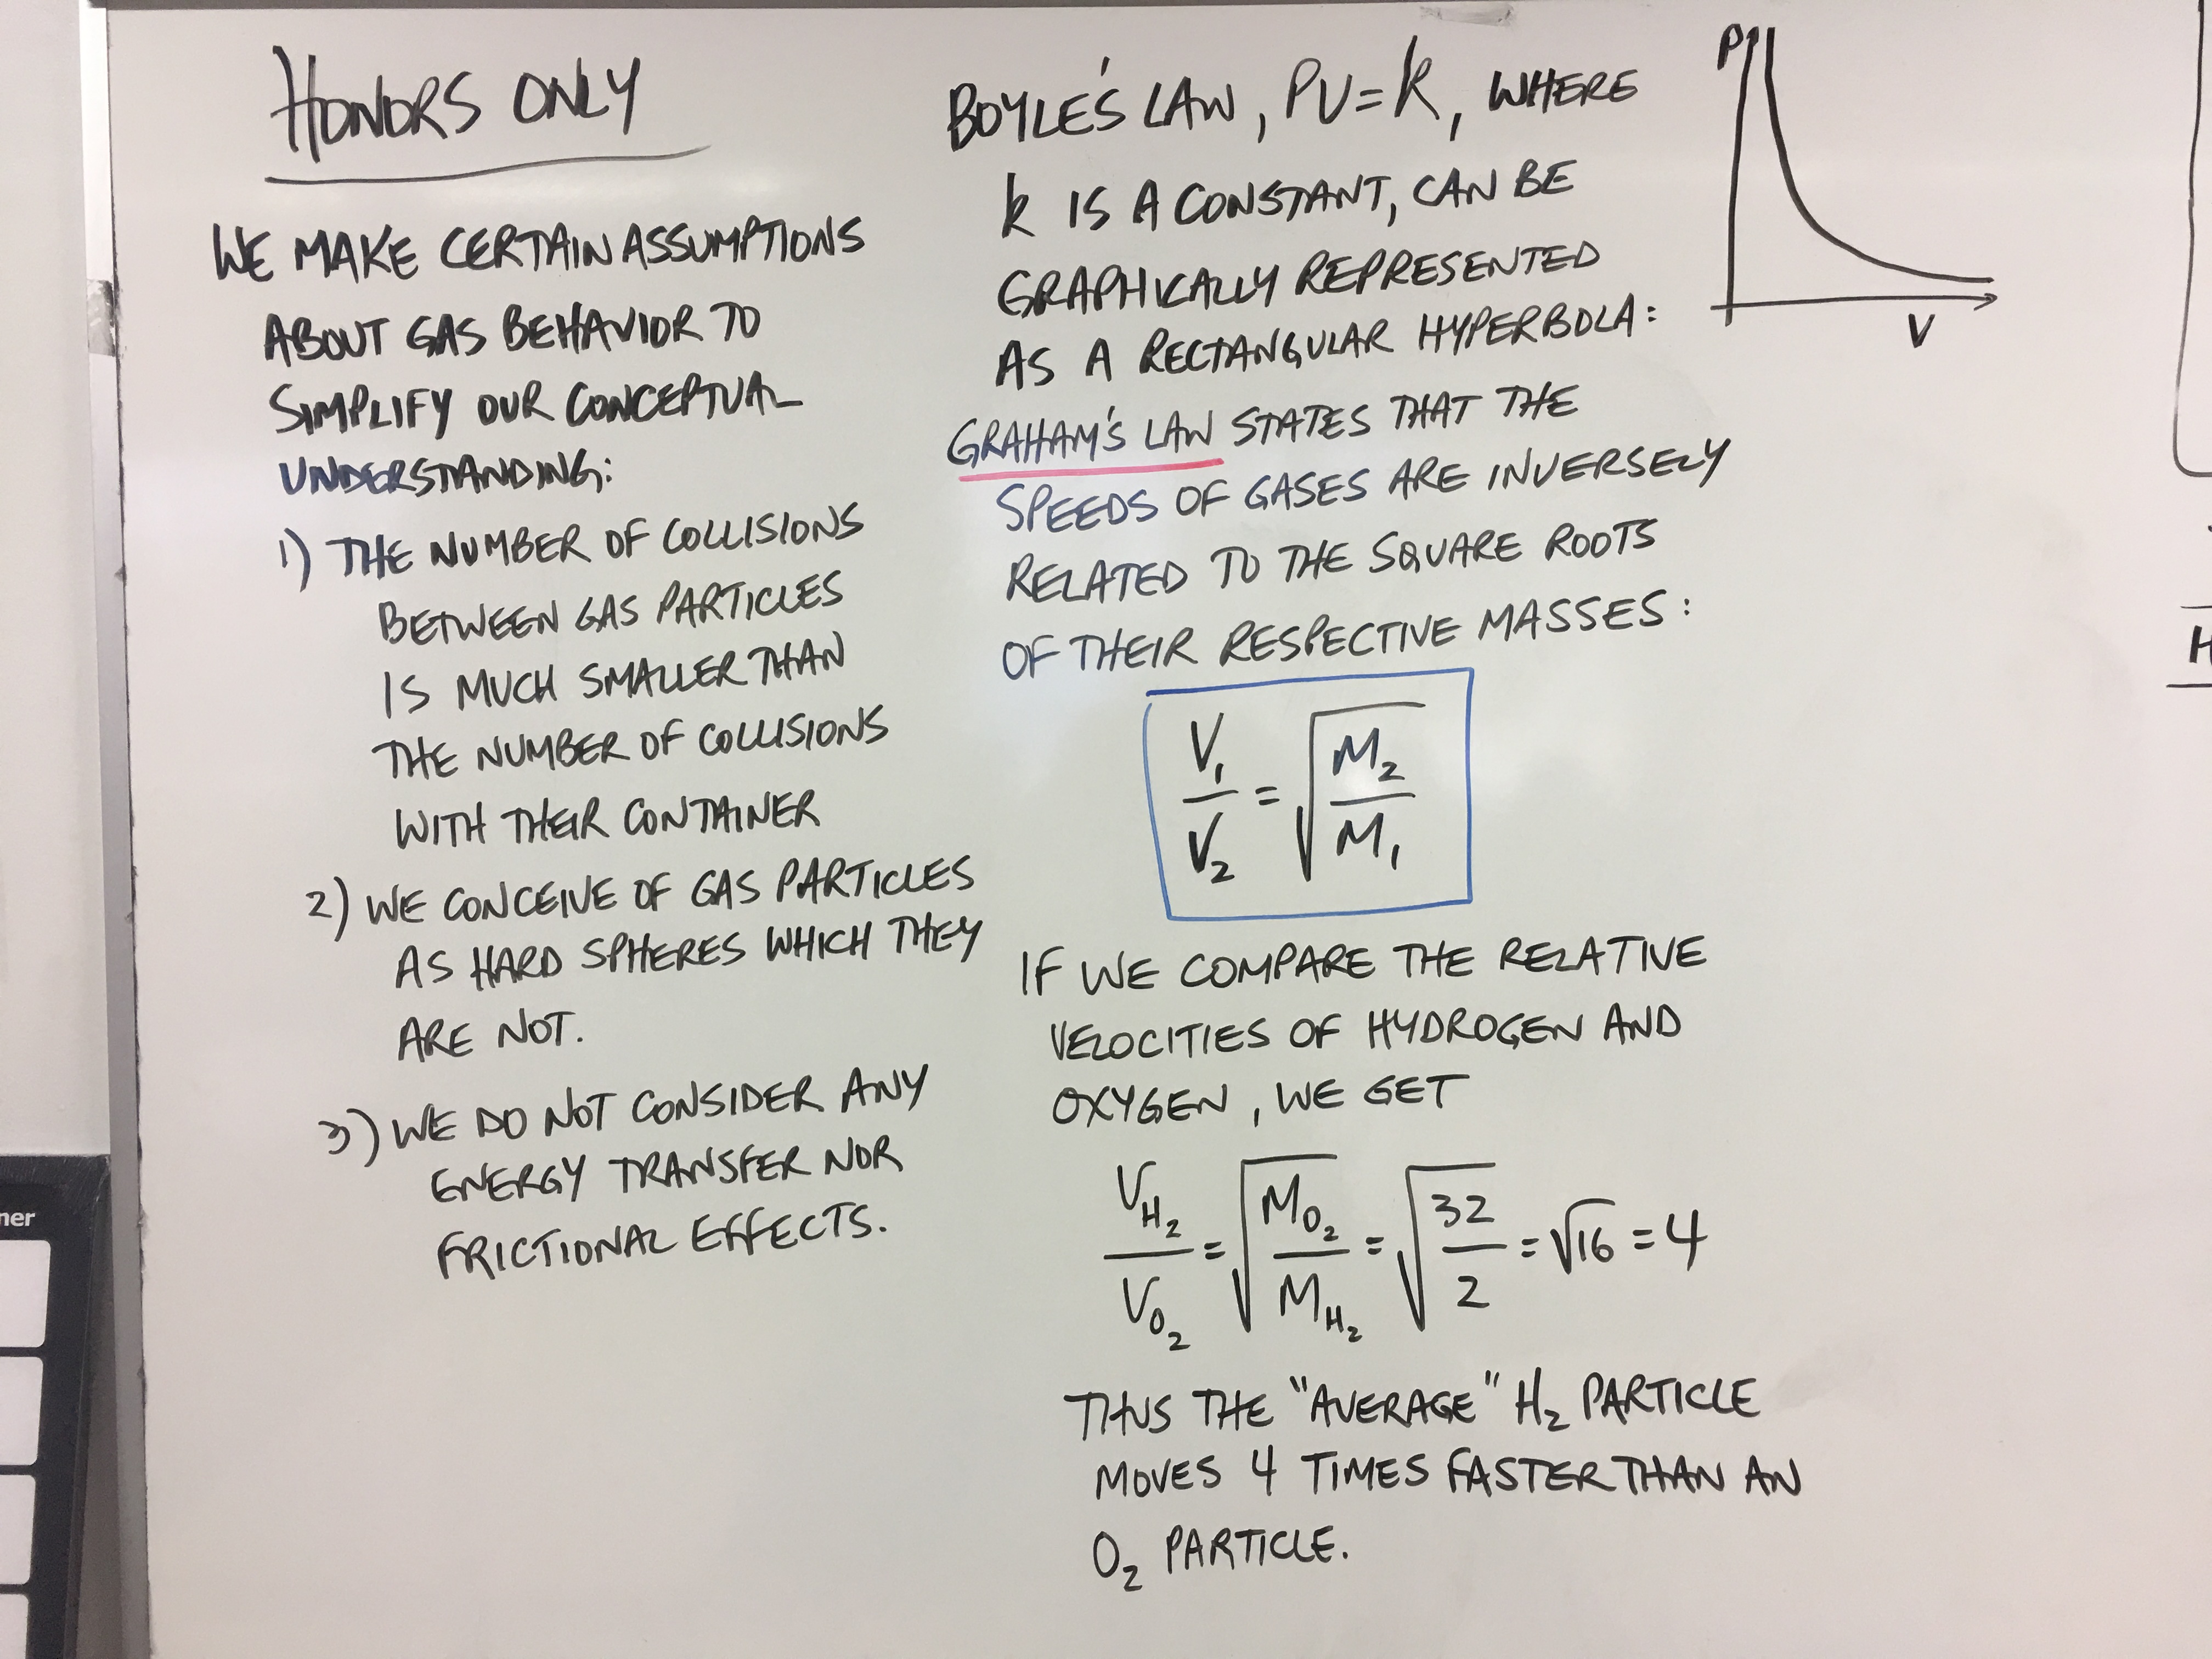 HONORS ONLY
WE MAKE CERTAIN ASSUMPTIONS
ABOUT GAS BEHAVIOR TO
SIMPLIFY OUR CONCEPTUAL
UNDERSTANDING:
1) THE NUMBER OF COLLISIONS
BETWEEN GAS PARTICLES
IS MUCH SMALLER THAN
THE NUMBER OF COLLISIONS
WITH THEIR CONTAINER
2) WE CONCEIVE OF GAS PARTICLES
AS HARD SPHERES WHICH THEY
ARE NOT.
3) WE DO NOT CONSIDER ANY
ENERGY TRANSFER NOR
FRICTIONAL EFFECTS.
BOYLE'S LAW, PV=k, WHERE
k IS A CONSTANT, CAN BE
GRAPHICALLY REPRESENTED
AS A RECTANGULAR HYPERBOLA:
P
V
GRAHAM'S LAW STATES THAT THE
SPEEDS OF GASES ARE INVERSELY
RELATED TO THE SQUARE ROOTS
OF THEIR RESPECTIVE MASSES:
V₁/V₂ = √(M₂/M₁)
IF WE COMPARE THE RELATIVE
VELOCITIES OF HYDROGEN AND
OXYGEN, WE GET
V_H₂/V_O₂ = √(M_O₂/M_H₂) = √(32/2) = √16 = 4
THUS THE "AVERAGE" H₂ PARTICLE
MOVES 4 TIMES FASTER THAN AN
O₂ PARTICLE.
ner
H